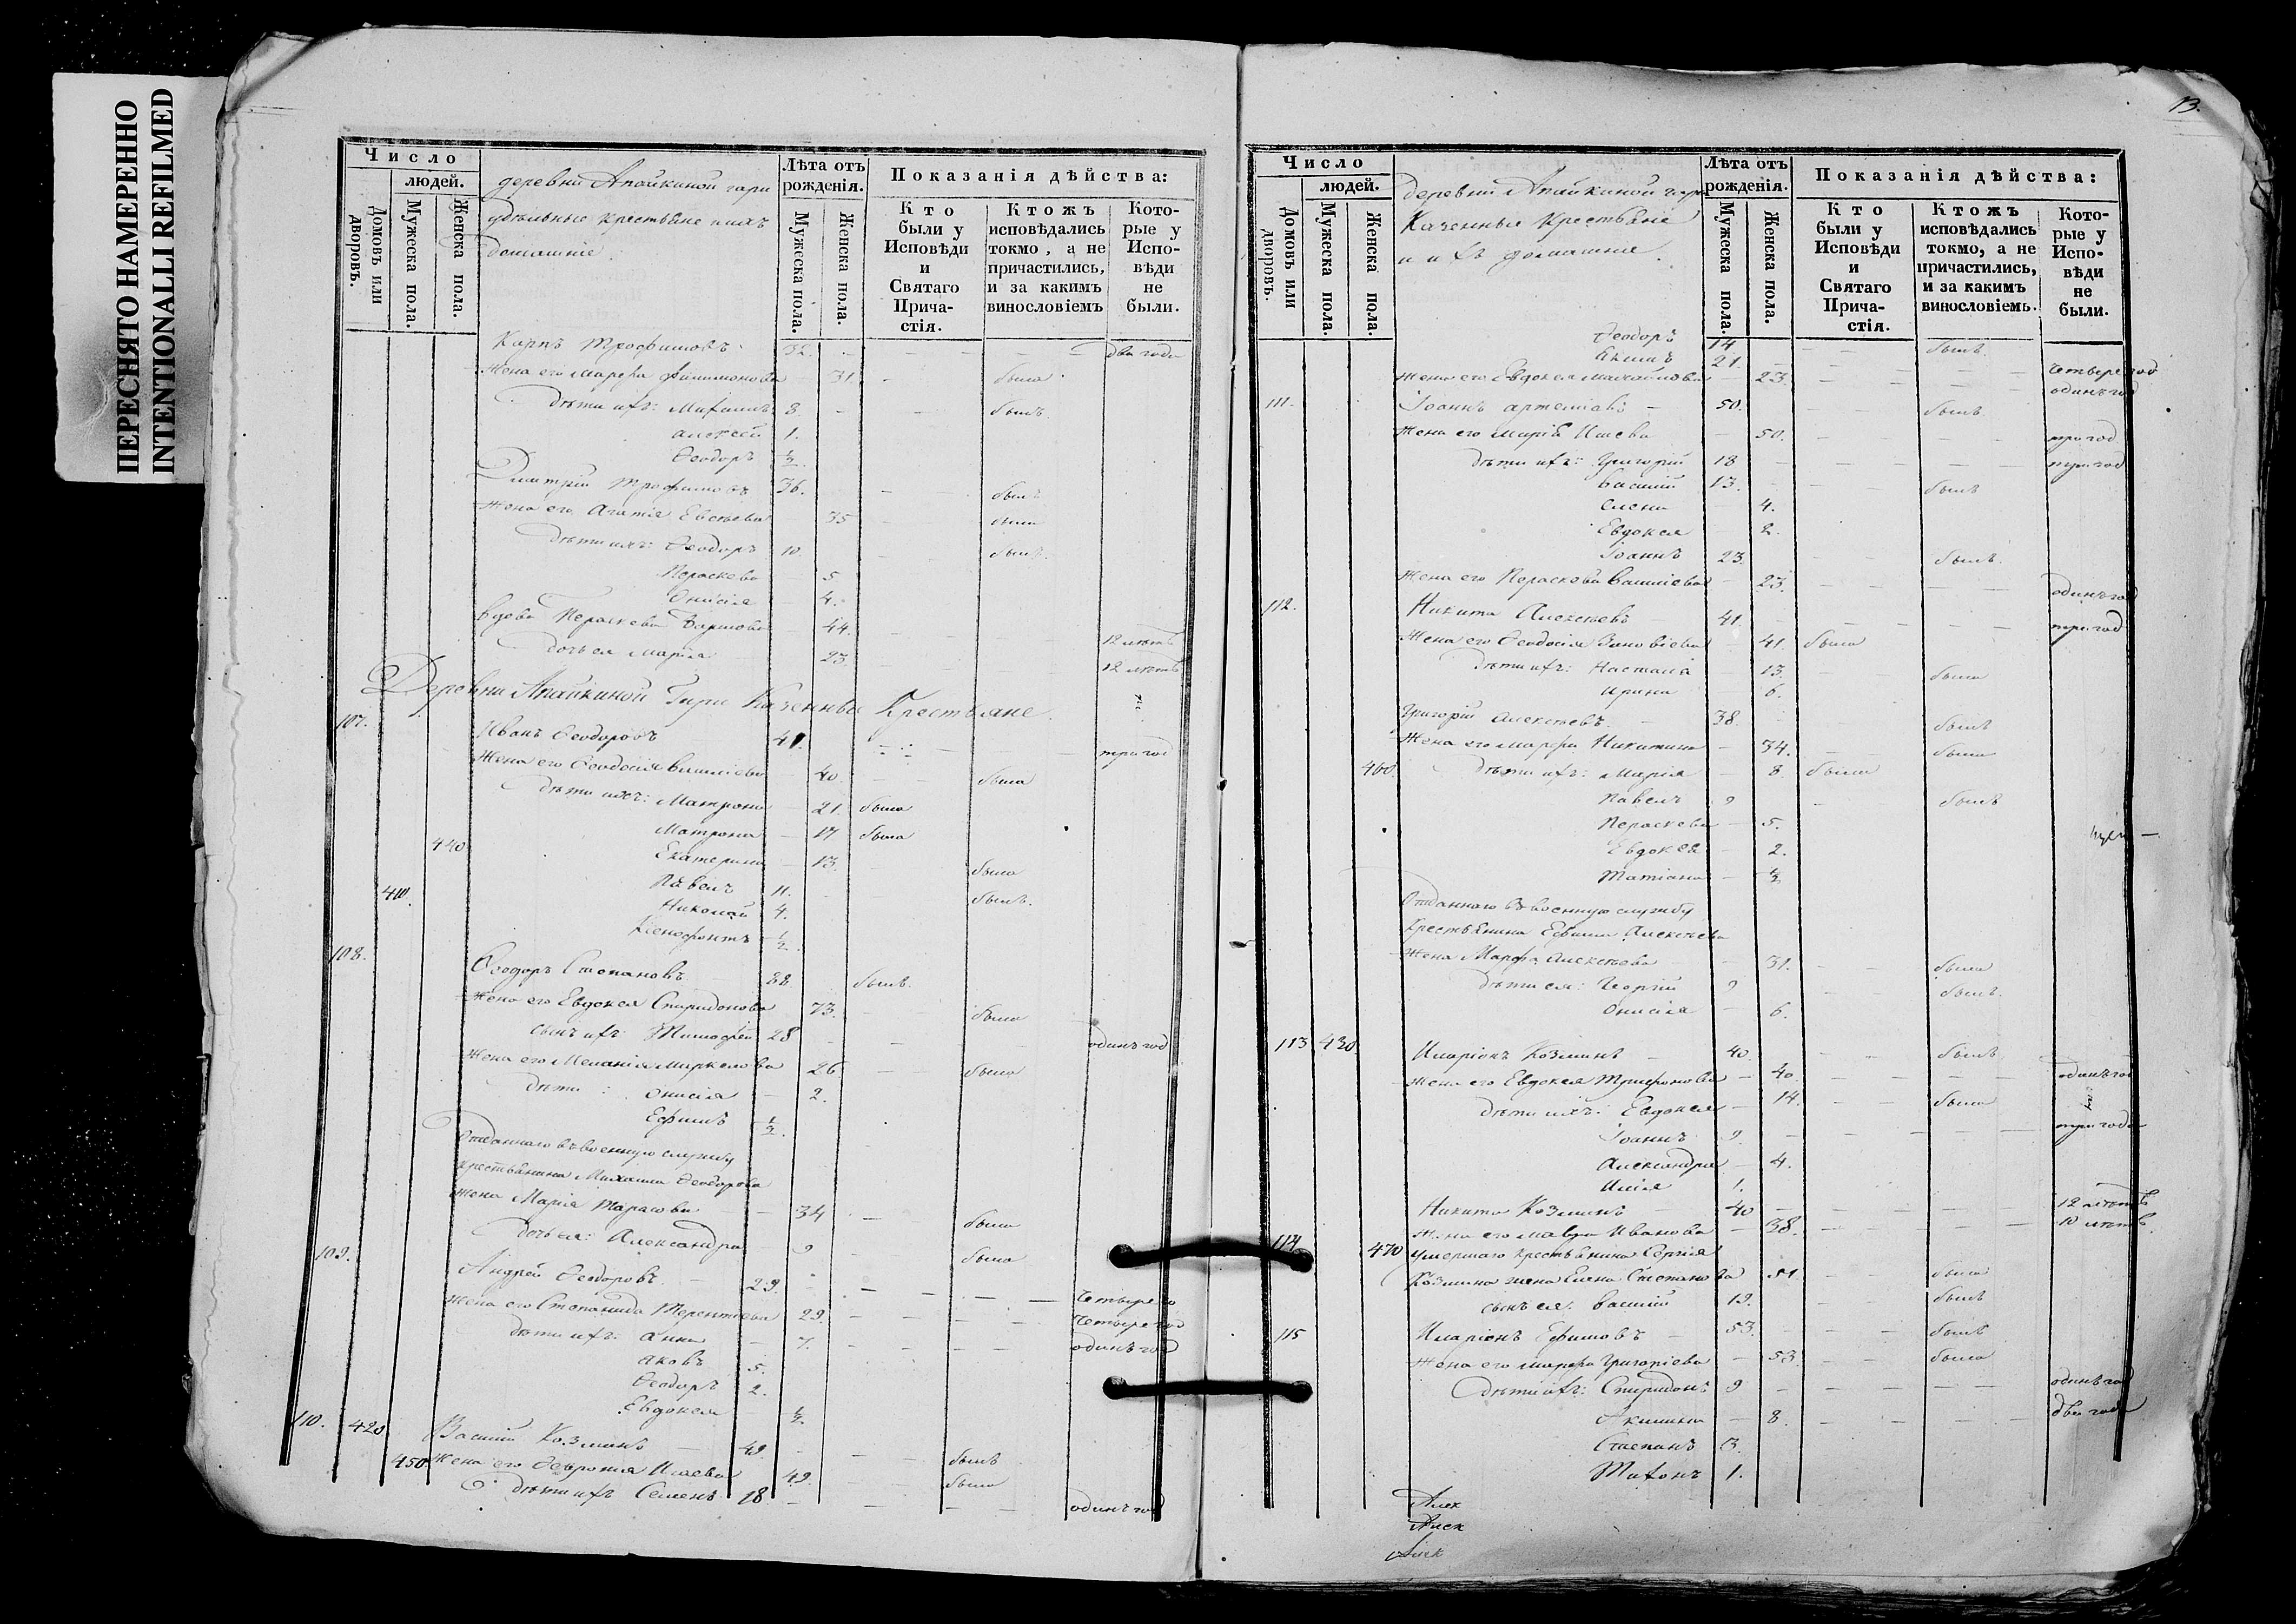 ПЕРЕСНЯТО НАМЕРЕННО
INTENTIONALLI REFILMED
Число
людей.
Домовъ или дворовъ.
Мужеска пола.
Женска пола.
деревни Апайкиной гари
удѣльные крестьяне и ихъ
домашніе.
Лѣта отъ рожденія.
Мужеска пола.
Женска пола.
Показанія дѣйства:
Кто были у Исповѣди и Святаго Прича-стія.
Ктожъ исповѣдались токмо, а не причастились, и за какимъ винословіемъ
Кото-рые у Испо-вѣди не были.
Карпъ Трофимовъ 32. два года
Жена его Марфа Филимонова 31. была
дѣти ихъ: 8. былъ
Алексей 1.
Ѳеодоръ 1/2
Димитрій Трофимовъ 36. былъ
Жена его Агаѳія Евсѣева 35 была
дѣти ихъ: Ѳеодоръ 10. былъ
Пераскева 5
Онисія 4.
Вдова Пераскева 44. 12 лѣтъ
дочь ея Марія 23. 12 лѣтъ
Деревни Апайкиной Гари Казенные Крестьяне.
107. Иванъ Ѳеодоровъ 41. три год
Жена его Ѳеодосія Василіева 40. была
дѣти ихъ: Матрона 21. была
Матрона 17 была
440 Екатерина 13. была
410. Павелъ 11. былъ.
Николай 4.
Ксенофонтъ 1/2.
108. Ѳеодоръ Степановъ 88 былъ.
Жена его Евдокея Спиридонова 73. была
сынъ ихъ Тимофей 28 одинъ год
Жена его Меланія Маркелова 26. была
дѣти: Онисія 2.
Ефимъ 1/2.
Отданнаго въ военную службу
крестьянина Михаила Ѳеодорова
жена Марія Тарасова 34 была
дочь ея: Александра 9 была
109. Андрей Ѳеодоровъ 29. четыре го
Жена его Степанида Терентіева 29. четыре год
дѣти ихъ: Анна 7. одинъ год
Яковъ 5.
Ѳеодоръ 2.
Евдокея 1/2.
110. 420 Василій Козминъ 49. былъ
450 Жена его Ѳеврония Исаева 49. была
дѣти ихъ Семенъ 18 одинъ год
13.
Число
людей.
Домовъ или дворовъ.
Мужеска пола.
Женска пола.
Деревни Апайкиной гари
Казенные Крестьяне
и ихъ домашніе.
Лѣта отъ рожденія.
Мужеска пола.
Женска пола.
Показанія дѣйства:
Кто были у Исповѣди и Святаго Прича-стія.
Ктожъ исповѣдались токмо, а не причастились, и за какимъ винословіемъ.
Кото-рые у Испо-вѣди не были.
Ѳеодоръ 14 былъ.
Акимъ 21. четыре год
Жена его Евдокея Михайлова 23. одинъ год
111. Іоаннъ Артеміевъ 50. былъ
Жена его Марія 50. три год
дѣти ихъ: Григорій 18 три год
Василій 13. былъ
Елена 4.
Евдокея 2.
Іоаннъ 23. былъ.
Жена его Пераскева Василіева 23. одинъ год
112. Никита Алексѣевъ 41. три год
Жена его Ѳеодосія Зиновіева 41. была
дѣти ихъ: Настасія 13. была
Ирина 6.
Григорій Алексѣевъ 38. былъ
Жена его Марфа Никитина 34. была
460. дѣти ихъ: Марія 8. была
Павелъ 9 былъ
Пераскева 5.
Евдокея 2.
Татіана 1/2
Отданнаго въ военную службу
Крестьянина Ефима Алексѣева
Жена Марфа Алексѣева 31. была
дѣти ея: Георгій 9 былъ.
Онисія 6.
113 430. Иларіонъ Козминъ 40. былъ
Жена его Евдокея Трифонова 40. одинъ год
дѣти ихъ: Евдокея 14. была
Іоаннъ 9. три года
Александра 4.
Илія 1.
Никита Козминъ 40 12 лѣтъ
Жена его Мавра Иванова 38. 10 лѣтъ.
114 470 Умершаго крестьянина Сергія
Козмина жена Елена Степанова 51. была
сынъ ея: Василій 12. былъ
115 Иларіонъ Ефимовъ 53. былъ
Жена его Марфа Григоріева 53. была
дѣти ихъ: Спиридонъ 9 одинъ год
Акилина 8. два года
Степанъ 3.
Тихонъ 1.
Алек
Алек
Алек